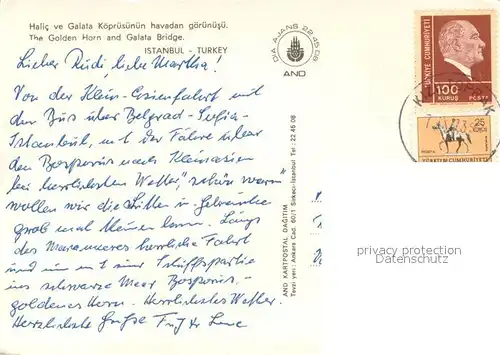 Haliç ve Galata Köprüsünün havadan görünüşü.
The Golden Horn and Galata Bridge.
ISTANBUL - TURKEY
DIA AJANS 22 45 08
AND
TÜRKİYE CUMHURİYETİ
100
KURUŞ POSTA
25
TÜRKİYE CUMHURİYETİ
Lieber Rudi, liebe Martha!
Von der Klein-Asienfahrt mit
den Bus über Belgrad-Sofia-
Istanbul, mit der Fähre über
den Bosporus nach Kleinasien
bei herrlichsten Wetter, schön warm
wollen wir die
groß und klein Längs
des Marmameeres herrliche Fahrt
und nun mit Schiffspartie
ins schwarze Meer Bosporus-
goldenes Horn. Herrlichstes Wetter.
Herzlichste Grüße
AND KARTPOSTAL DAĞITIM
Tevzi yeri: Ankara Cad. 60/1 Sirkeci-İstanbul Tel: 22 45 08
privacy protection
Datenschutz